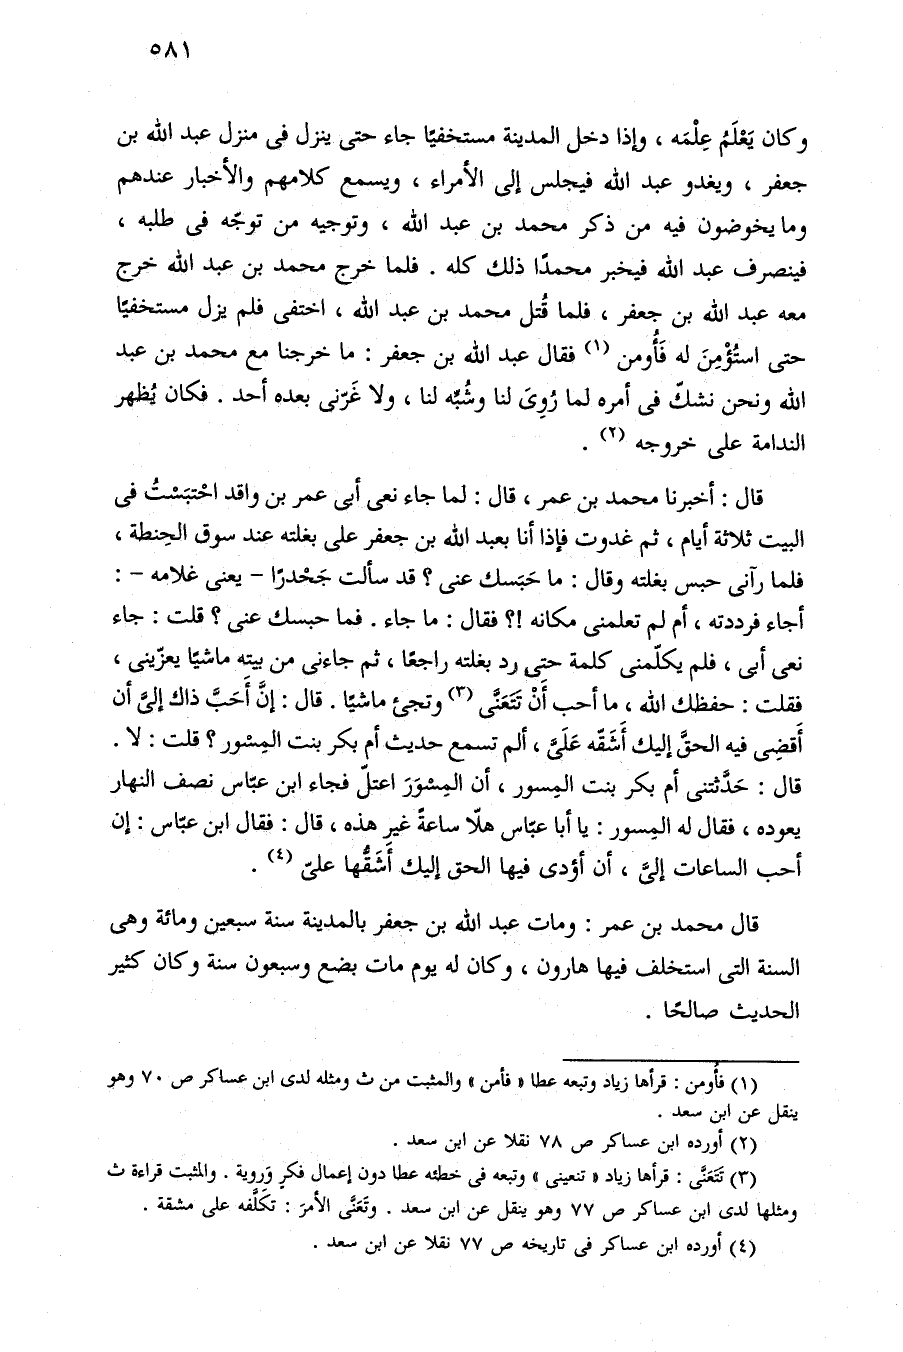 ٥٨١
وكان يَعْلَمُ عِلْمَه ، وإذا دخل المدينة مستخفيًا جاء حتى ينزل فى منزل عبد الله بن
جعفر ، ويغدو عبد الله فيجلس إلى الأمراء ، ويسمع كلامهم والأخبار عندهم
وما يخوضون فيه من ذكر محمد بن عبد الله ، وتوجيه من توجّه فى طلبه ،
فينصرف عبد الله فيخبر محمدًا ذلك كله . فلما خرج محمد بن عبد الله خرج
معه عبد الله بن جعفر ، فلما قُتل محمد بن عبد الله ، اختفى فلم يزل مستخفيًا
حتى استُؤْمِنَ له فَأُومن (١) فقال عبد الله بن جعفر : ما خرجنا مع محمد بن عبد
الله ونحن نشكّ فى أمره لما رُوِىَ لنا وشُبّه لنا ، ولا غَرّنى بعده أحد . فكان يُظهر
الندامة على خروجه (٢) .
قال : أخبرنا محمد بن عمر ، قال : لما جاء نعى أبى عمر بن واقد احْتبَسْتُ فى
البيت ثلاثة أيام ، ثم غدوت فإذا أنا بعبد الله بن جعفر على بغلته عند سوق الحِنطة ،
فلما رآنى حبس بغلته وقال : ما حَبَسك عنى ؟ قد سألت جَحْدرًا - يعنى غلامه - :
أجاء فرددته ، أم لم تعلمنى مكانه !؟ فقال : ما جاء . فما حبسك عنى ؟ قلت : جاء
نعى أبى ، فلم يكلّمنى كلمة حتى رد بغلته راجعًا ، ثم جاءنى من بيته ماشيًا يعزّينى ،
فقلت : حفظك الله ، ما أحب أَنْ تَتَعَنَّى (٣) وتجئ ماشيًا . قال : إنَّ أَحَبَّ ذاك إلىَّ أن
أَقضِى فيه الحقَّ إليك أَشَقّه عَلَىَّ ، ألم تسمع حديث أم بكر بنت المِسْور ؟ قلت : لا .
قال : حَدَّثتنى أم بكر بنت المِسور ، أن المِسْوَرَ اعتلّ فجاء ابن عبّاس نصف النهار
يعوده ، فقال له المِسور : يا أبا عبّاس هلّا ساعةً غير هذه ، قال : فقال ابن عبّاس : إن
أحب الساعات إلىَّ ، أن أؤدى فيها الحق إليك أَشَقُّها علىّ (٤) .
قال محمد بن عمر : ومات عبد الله بن جعفر بالمدينة سنة سبعين ومائة وهى
السنة التى استخلف فيها هارون ، وكان له يوم مات بضع وسبعون سنة وكان كثير
الحديث صالحًا .
(١) فأُومن : قرأها زياد وتبعه عطا « فأمن » والمثبت من ث ومثله لدى ابن عساكر ص ٧٠ وهو
ينقل عن ابن سعد .
(٢) أورده ابن عساكر ص ٧٨ نقلا عن ابن سعد .
(٣) تَتَعَنَّى : قرأها زياد « تنعينى » وتبعه فى خطئه عطا دون إعمال فكرٍ وَروية . والمثبت قراءة ث
ومثلها لدى ابن عساكر ص ٧٧ وهو ينقل عن ابن سعد . وتَعَنَّى الأمرَ : تكَلَّفه على مشقة .
(٤) أورده ابن عساكر فى تاريخه ص ٧٧ نقلا عن ابن سعد .